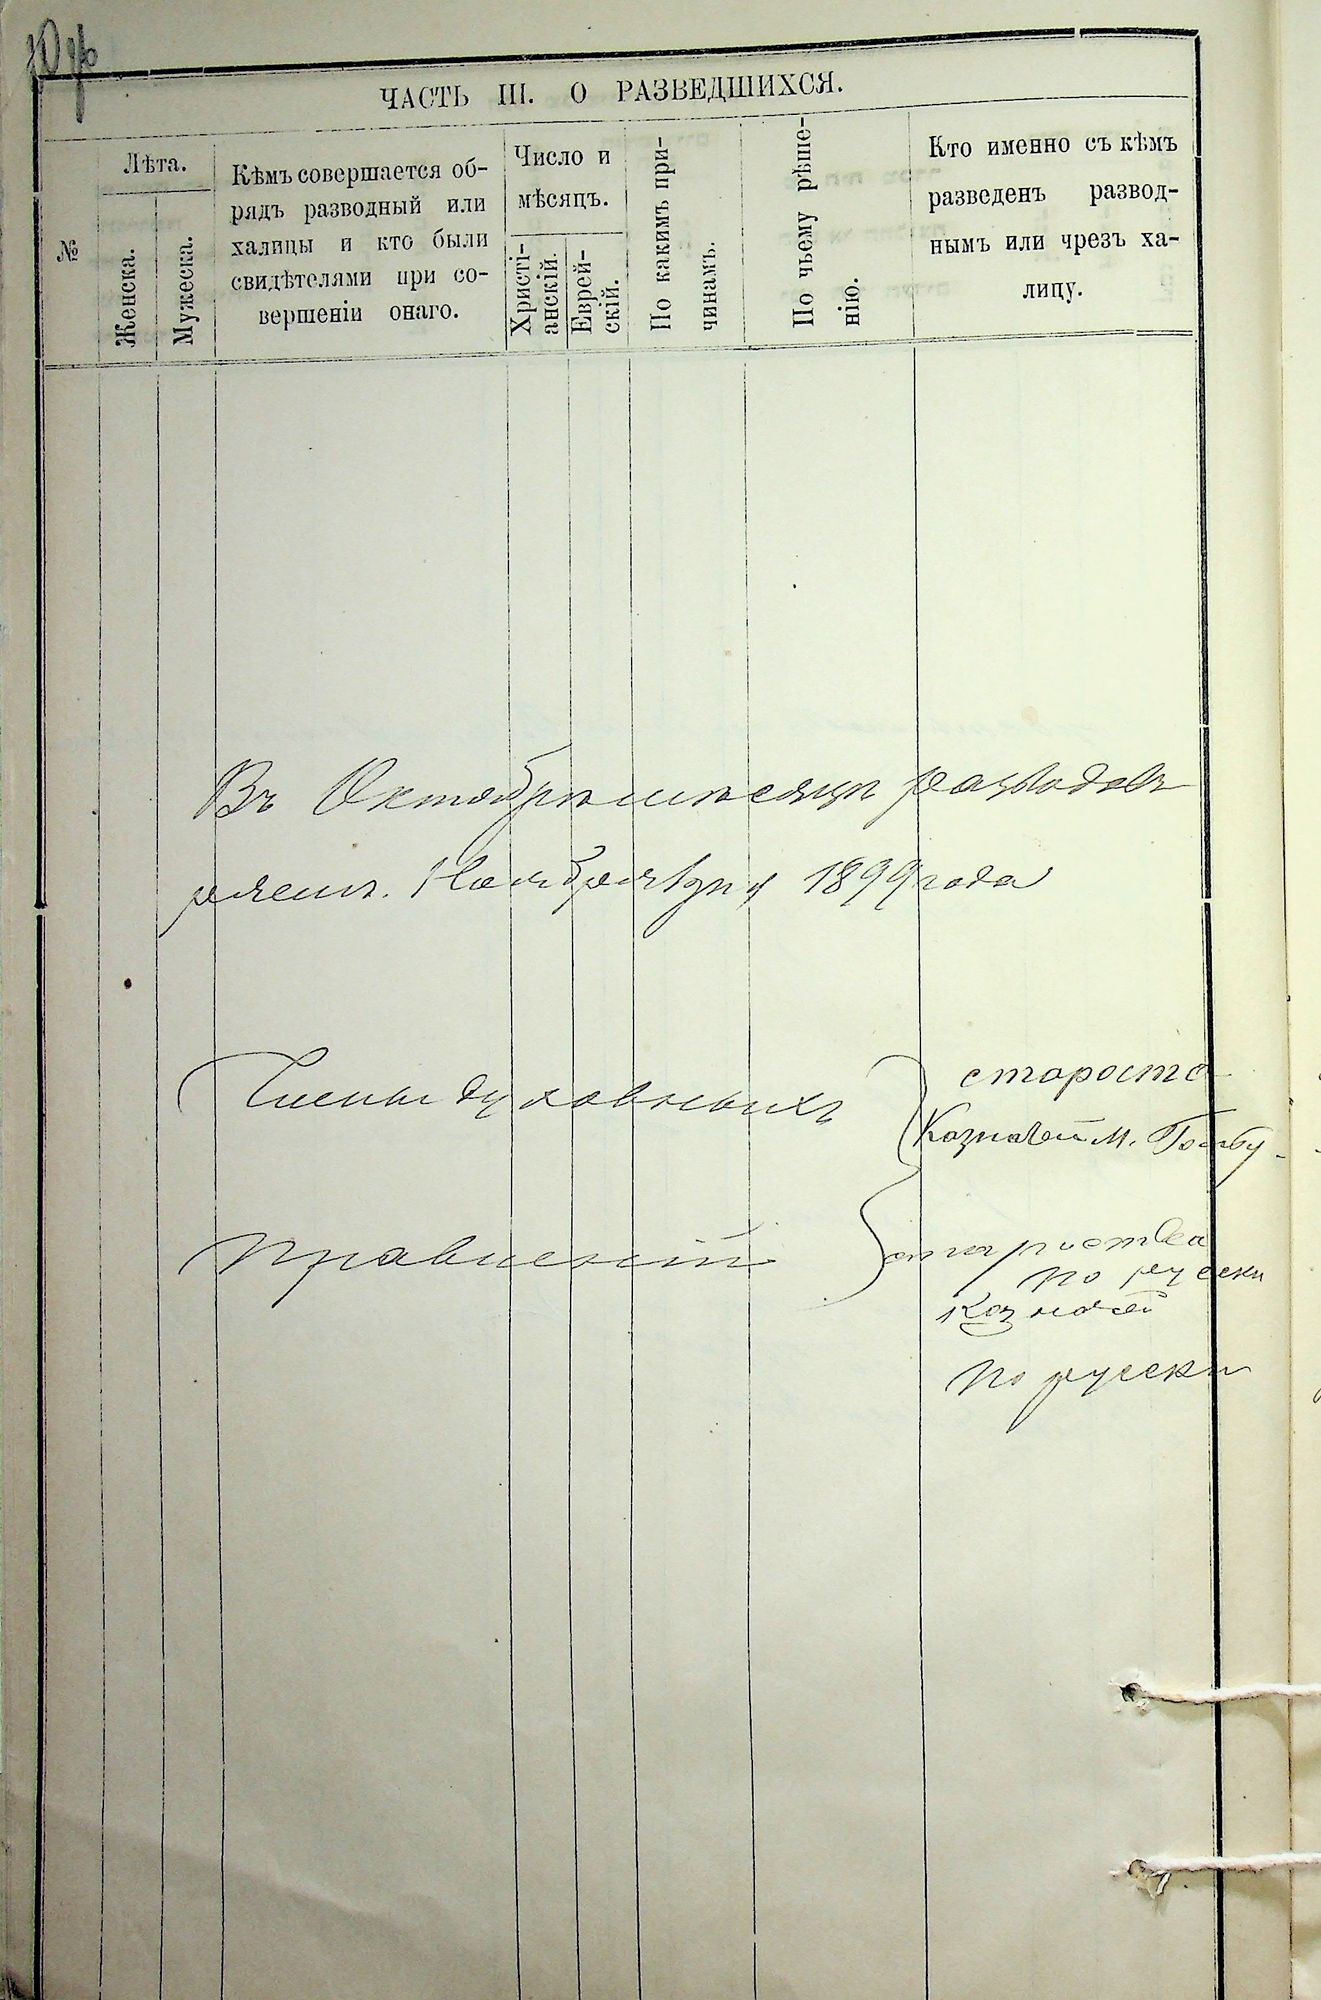 ЧАСТЬ III. О РАЗВЕДШИХСЯ.
№
Лѣта.
Женска.
Мужеска.
Кѣмъ совершается об-
рядъ разводный или
халицы и кто были
свидѣтелями при со-
вершеніи онаго.
Число и
мѣсяцъ.
Христі-
анскій.
Еврей-
скій.
По какимъ при-
чинамъ.
По чьему рѣше-
нію.
Кто именно съ кѣмъ
разведенъ развод-
нымъ или чрезъ ха-
лицу.
Въ Октябрѣ мѣсяцѣ разводовъ
Ноября 1899 года
Члены духовныхъ
правленій
староста
Казначей М.
по русски
Казначей
по русски